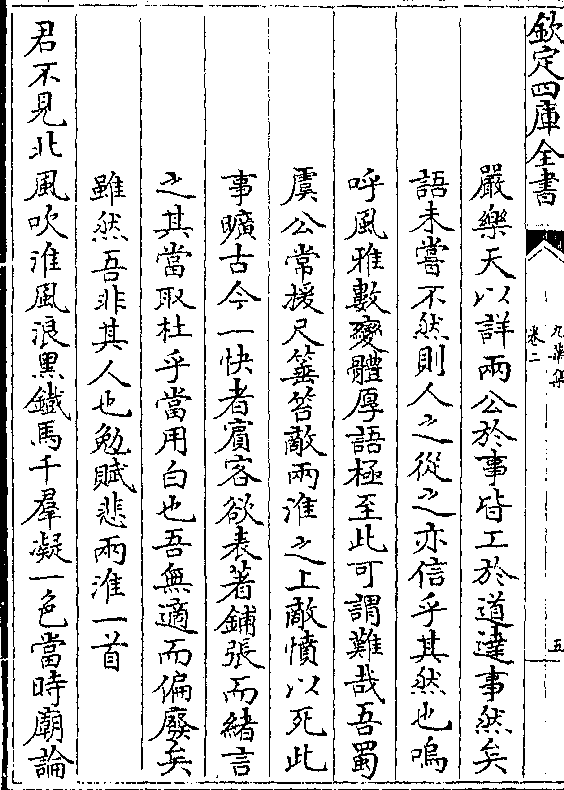 欽定四庫全書
九華集
卷二
五
嚴樂天以詳兩公於事皆工於道達事然矣
語未嘗不然則人之從之亦信乎其然也嗚
呼風雅數變體厚語極至此可謂難哉吾蜀
虞公常援尺箠笞敵兩淮之上敵憤以死此
事曠古今一快者賓客欲表著鋪張而緒言
之其當取杜乎當用白也吾無適而偏廢矣
雖然吾非其人也勉賦悲兩淮一首
君不見北風吹淮風浪黑鐵馬千羣凝一色當時廟論